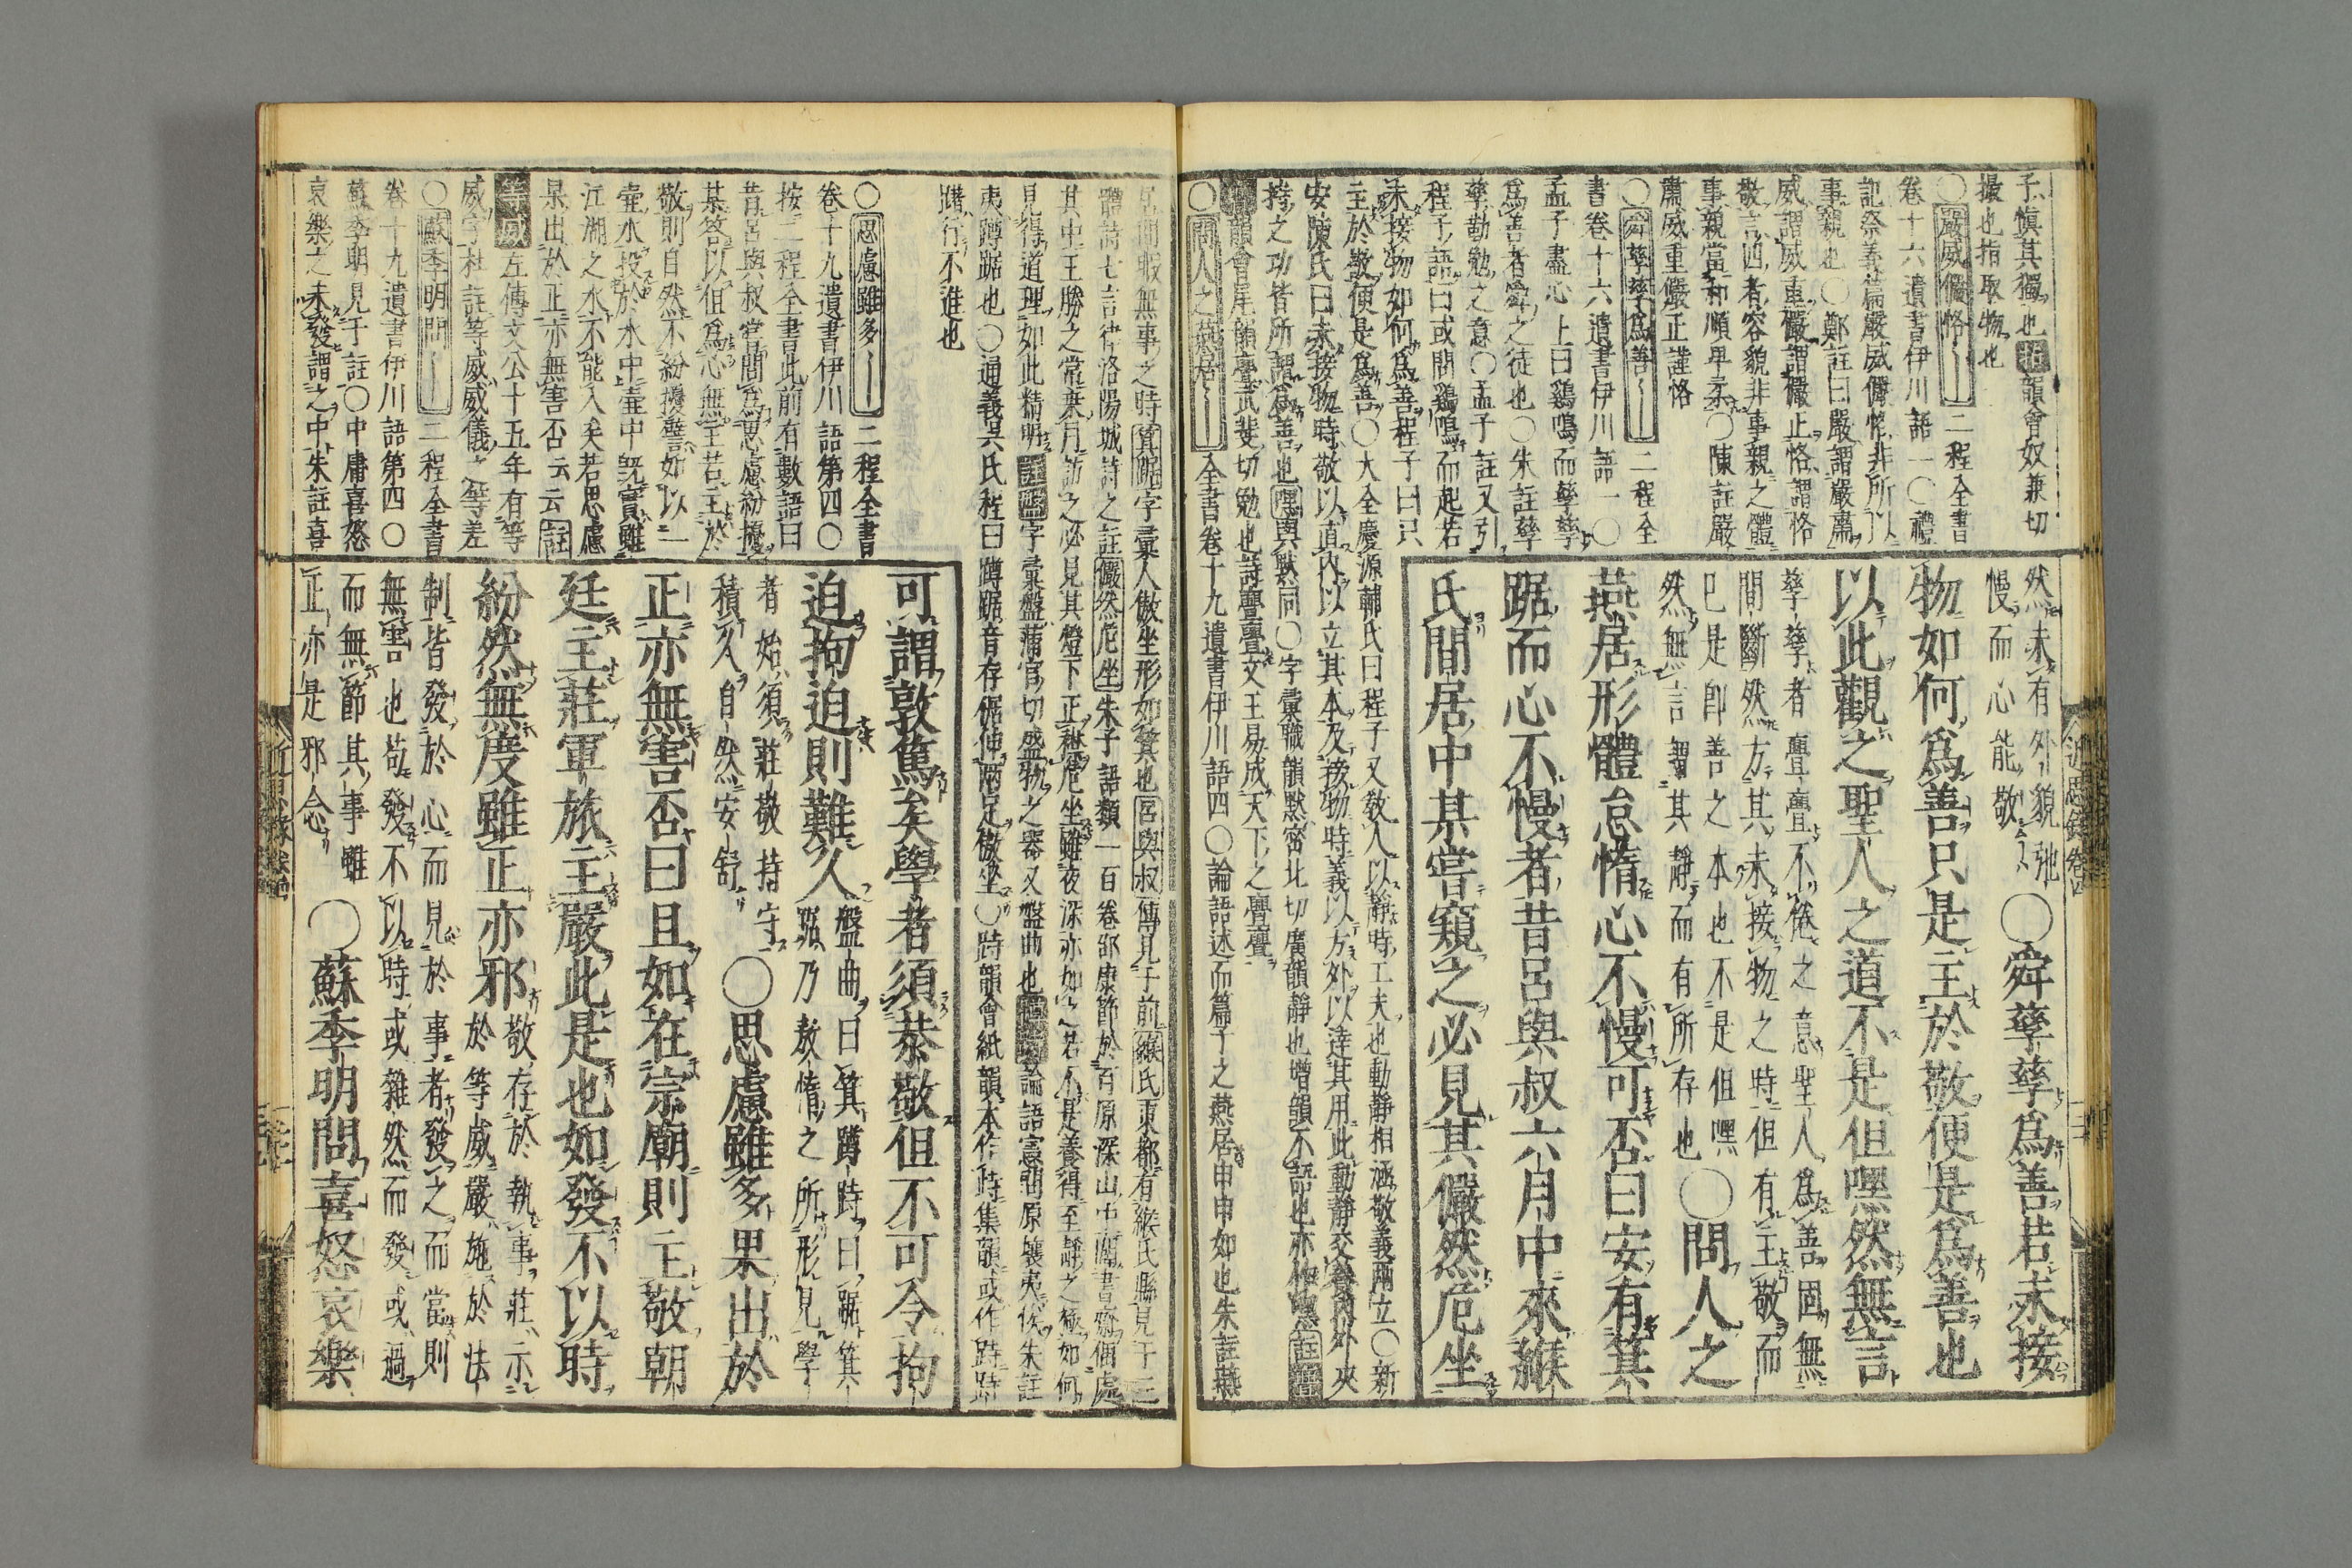 子愼其獨也
撮也指取物也
○嚴威儼恪 二程全書
卷十六遺書伊川語一○禮
記祭義篇嚴威儼恪非所以
事親也○鄭註曰嚴謂嚴肅
威謂威重儼謂儼正恪謂恪
敬言四者容貌非事親之體
事親當和順卑柔○陳註嚴
肅威重儼正謹恪
○舜孳孳爲善 二程全
書卷十六遺書伊川語一○
孟子盡心上曰鷄鳴而起孳孳
爲善者舜之徒也○朱註孳
孳勤勉之意○孟子註又引
程子語曰或問鷄鳴而起若
未接物如何爲善程子曰只
主於敬便是爲善○大全慶源輔氏曰程子又敎人以靜時工夫也動靜相涵敬義兩立○新
安陳氏曰未接物時敬以直內以立其本及接物時義以方外以達其用此動靜交養內外夾
持之功皆所謂爲善也嘿與默同○字彙職韻默密北切廣韻靜也增韻不語也
韻會尾韻亹武斐切勉也詩亹亹文王易成天下之亹亹
○問人之燕居 全書卷十九遺書伊川語四○論語述而篇子之燕居申申如也朱註燕
然未有外貌弛
慢而心能敬 ○舜孳孳爲善若未接
物如何爲善只是主於敬便是爲善也
以此觀之聖人之道不是但嘿然無言
孳孳者亹亹不倦之意聖人爲善固無
間斷然方其未接物之時但有主敬而
已是卽善之本也不是但嘿
然無言謂其靜而有所存也 ○問人之
燕居形體怠惰心不慢可否曰安有箕
踞而心不慢者昔呂與叔六月中來緱
氏間居中某嘗窺之必見其儼然危坐
近思錄 卷四
居間暇無事之時箕踞字彙人傲坐形如箕也呂與叔傳見于前緱氏東都有緱氏縣見于三
體詩七言律洛陽城詩之註儼然危坐朱子語類一百卷邵康節於百原深山中闢書齋獨處
其中王勝之常乘月訪之必見其燈下正襟危坐雖夜深亦如之若不是養得至靜之極如何
見得道理如此精明註盤字彙盤蒲官切盛物之器又盤曲也論語憲問原壤夷俟朱註
夷蹲踞也○通義吳氏程曰蹲踞音存倨伸兩足傲坐○跱韻會紙韻本作峙集韻或作跱跱
躇行不進也
○思慮雖多 二程全書
卷十九遺書伊川語第四○
按二程全書此前有數語曰
昔呂與叔嘗問爲思慮紛擾
某答以但爲心無主若主於
敬則自然不紛擾譬如以一
壷水投於水中壷中旣實雖
江湖之水不能入矣若思慮
果出於正亦無害否云云註
等威左傳文公十五年有等
威字杜註等威威儀之等差
○蘇季明問 二程全書
卷十九遺書伊川語第四○
蘇季明見于註○中庸喜怒
哀樂之未發謂之中朱註喜
可謂敦篤矣學者須恭敬但不可令拘
迫拘迫則難久 盤曲曰箕蹲跱曰踞箕
踞乃敖惰之所形見學
者始須莊敬持守
積久自然安舒 ○思慮雖多果出於
正亦無害否曰且如在宗廟則主敬朝
廷主莊軍旅主嚴此是也如發不以時
紛然無度雖正亦邪 敬存於執事莊示
於等威嚴施於法
制皆發於心而見於事者發之而當則
無害也苟發不以時或雜然而發或過
而無節其事雖
正亦是邪念 ○蘇季明問喜怒哀樂